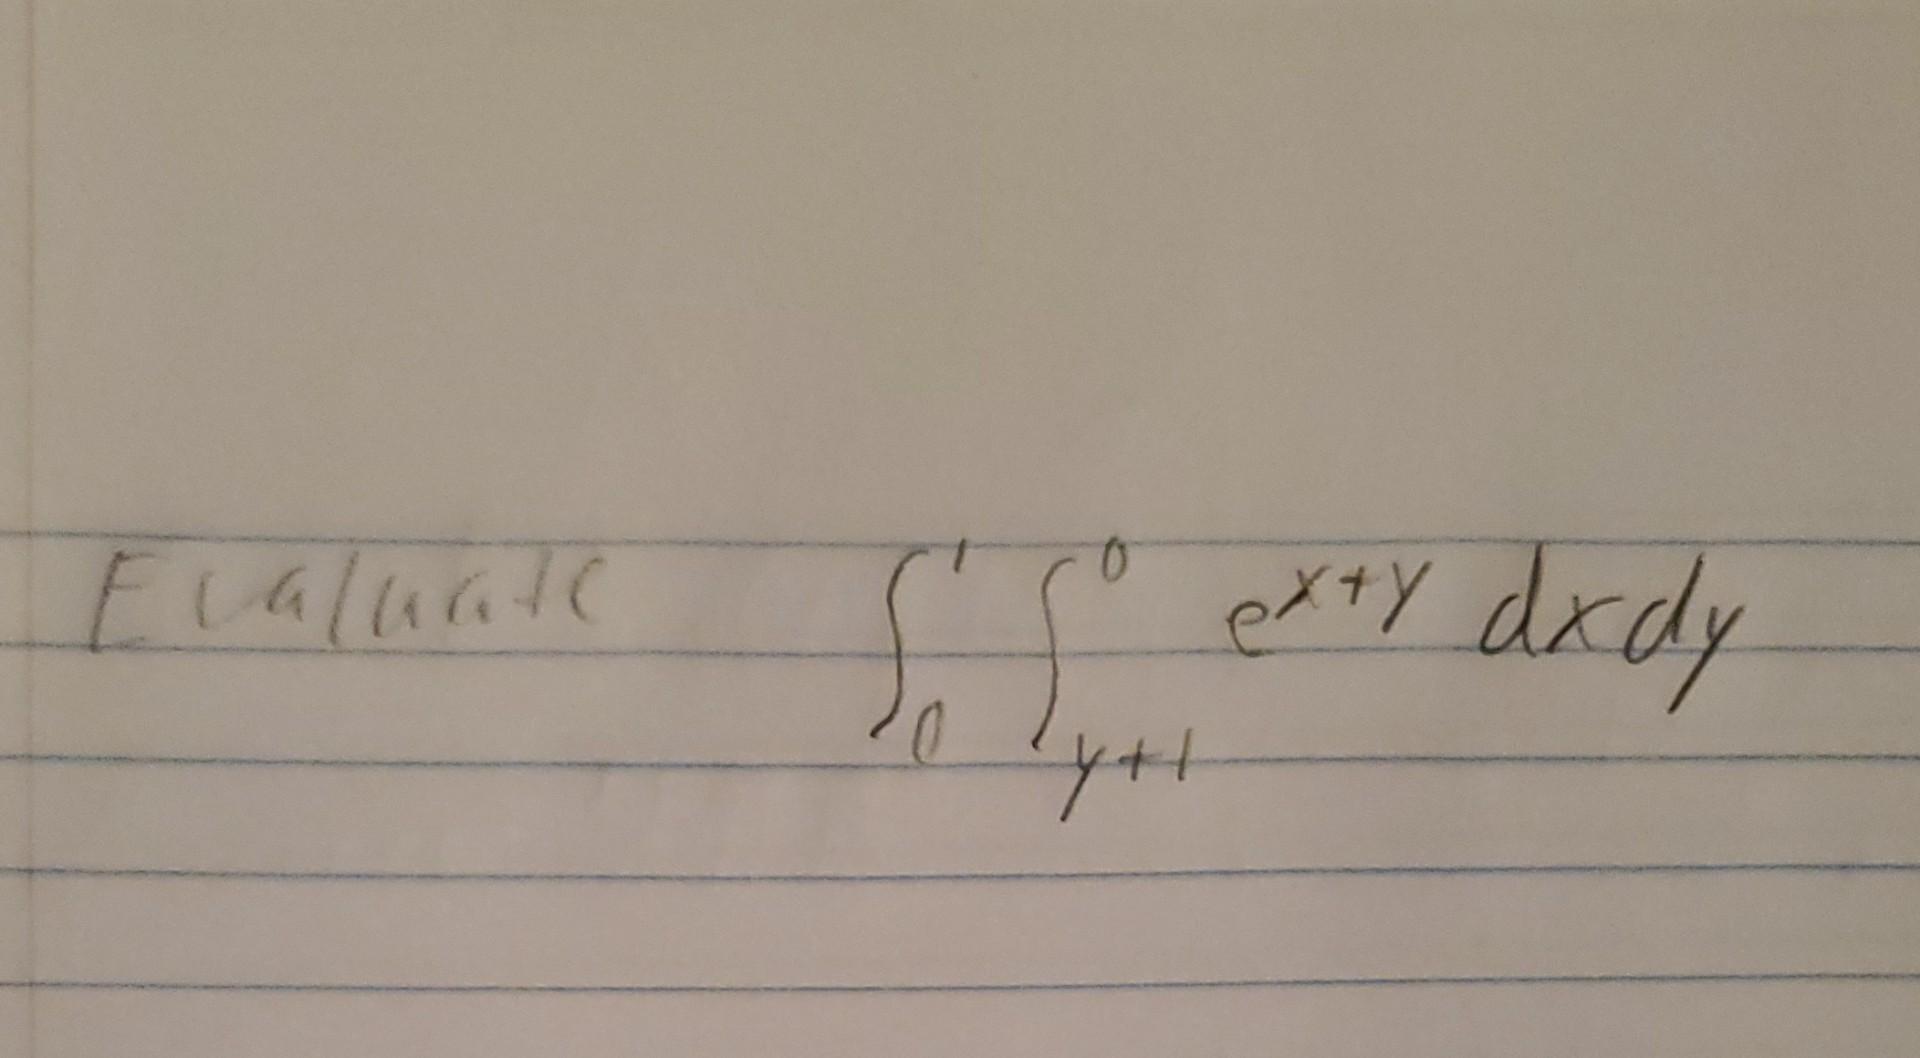 Evaluate ∫₀¹ ∫_{y+1}^{0} e^{x+y} dx dy